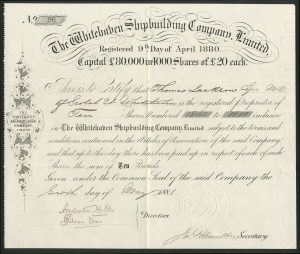 No
The Whitehaven Shipbuilding Company, Limited.
Registered 9th Day of April 1880.
Capital £80,000 in 4000 Shares of £20 each.
This is to Certify that Thomas Jackson
of Whitehaven is the registered Proprietor of
Ten Shares Numbered to inclusive
in The Whitehaven Shipbuilding Company, Limited subject to the terms and
conditions contained in the Articles of Association of the said Company
and that up to this day there has been paid up in respect of each of such
Shares the sum of Ten Pounds.
Given under the Common Seal of the said Company the
day of May 1881
Directors.
Secretary.